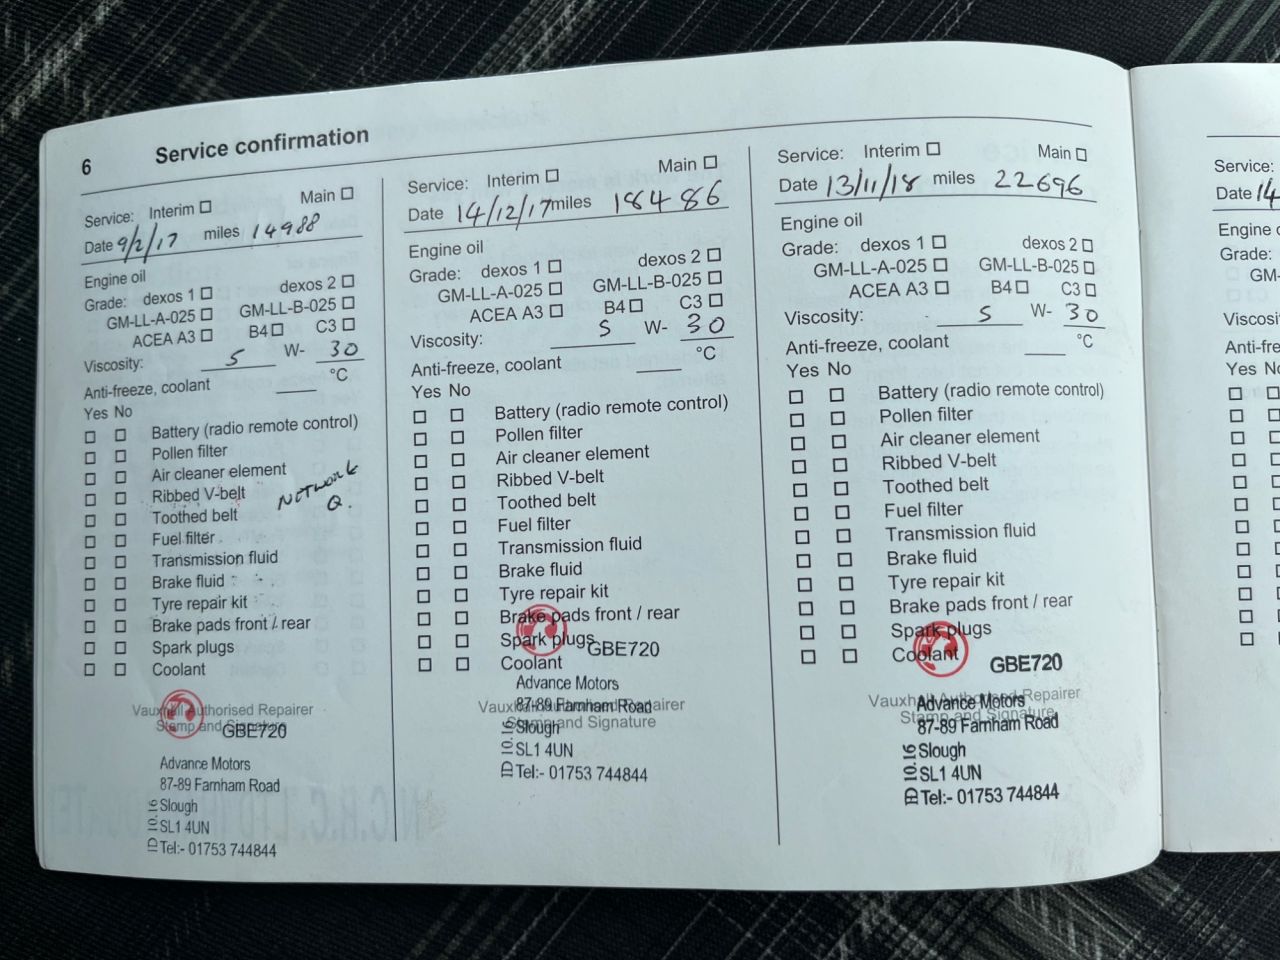 6 Service confirmation
Service: Interim ☐ Main ☐
Date 9/2/17 miles 14988
Engine oil
Grade: dexos 1 ☐ dexos 2 ☐
GM-LL-A-025 ☐ GM-LL-B-025 ☐
ACEA A3 ☐ B4 ☐ C3 ☐
Viscosity: 5 W- 30
Anti-freeze, coolant °C
Yes No
☐ ☐ Battery (radio remote control)
☐ ☐ Pollen filter
☐ ☐ Air cleaner element
☐ ☐ Ribbed V-belt
☐ ☐ Toothed belt
☐ ☐ Fuel filter
☐ ☐ Transmission fluid
☐ ☐ Brake fluid
☐ ☐ Tyre repair kit
☐ ☐ Brake pads front / rear
☐ ☐ Spark plugs
☐ ☐ Coolant
NETWORK
Q
Vauxhall Authorised Repairer
Stamp and Signature
GBE720
Advance Motors
87-89 Farnham Road
Slough
SL1 4UN
Tel:- 01753 744844
ID 10.16
Service: Interim ☐ Main ☐
Date 14/12/17 miles 18486
Engine oil
Grade: dexos 1 ☐ dexos 2 ☐
GM-LL-A-025 ☐ GM-LL-B-025 ☐
ACEA A3 ☐ B4 ☐ C3 ☐
Viscosity: 5 W- 30
Anti-freeze, coolant °C
Yes No
☐ ☐ Battery (radio remote control)
☐ ☐ Pollen filter
☐ ☐ Air cleaner element
☐ ☐ Ribbed V-belt
☐ ☐ Toothed belt
☐ ☐ Fuel filter
☐ ☐ Transmission fluid
☐ ☐ Brake fluid
☐ ☐ Tyre repair kit
☐ ☐ Brake pads front / rear
☐ ☐ Spark plugs
☐ ☐ Coolant
GBE720
Vauxhall Authorised Repairer
Stamp and Signature
Advance Motors
87-89 Farnham Road
Slough
SL1 4UN
Tel:- 01753 744844
ID 10.16
Service: Interim ☐ Main ☐
Date 13/11/18 miles 22696
Engine oil
Grade: dexos 1 ☐ dexos 2 ☐
GM-LL-A-025 ☐ GM-LL-B-025 ☐
ACEA A3 ☐ B4 ☐ C3 ☐
Viscosity: 5 W- 30
Anti-freeze, coolant °C
Yes No
☐ ☐ Battery (radio remote control)
☐ ☐ Pollen filter
☐ ☐ Air cleaner element
☐ ☐ Ribbed V-belt
☐ ☐ Toothed belt
☐ ☐ Fuel filter
☐ ☐ Transmission fluid
☐ ☐ Brake fluid
☐ ☐ Tyre repair kit
☐ ☐ Brake pads front / rear
☐ ☐ Spark plugs
☐ ☐ Coolant
GBE720
Vauxhall Authorised Repairer
Stamp and Signature
Advance Motors
87-89 Farnham Road
Slough
SL1 4UN
Tel:- 01753 744844
ID 10.16
Service:
Date 14
Engine
Grade:
GM-
Yes